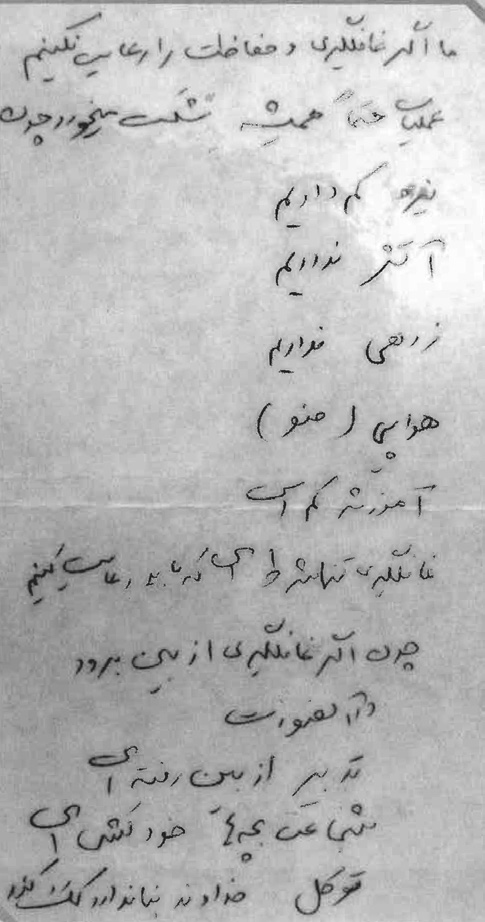 ما اگر غافلگیری و حفاظت را رعایت نکنیم
عملیات حتماً همیشه شکست میخورد چون
نیرو کم داریم
آتش نداریم
زرهی نداریم
هوایی (منو)
آموزش کم است
غافلگیری تنها شرط است که باید رعایت کنیم
چون اگر غافلگیری از بین برود
در آنصورت
تدبیر از بین رفته است
شجاعت بچه‌ها خودکشی است
توکل خداوند بنا ندارد کمک کند